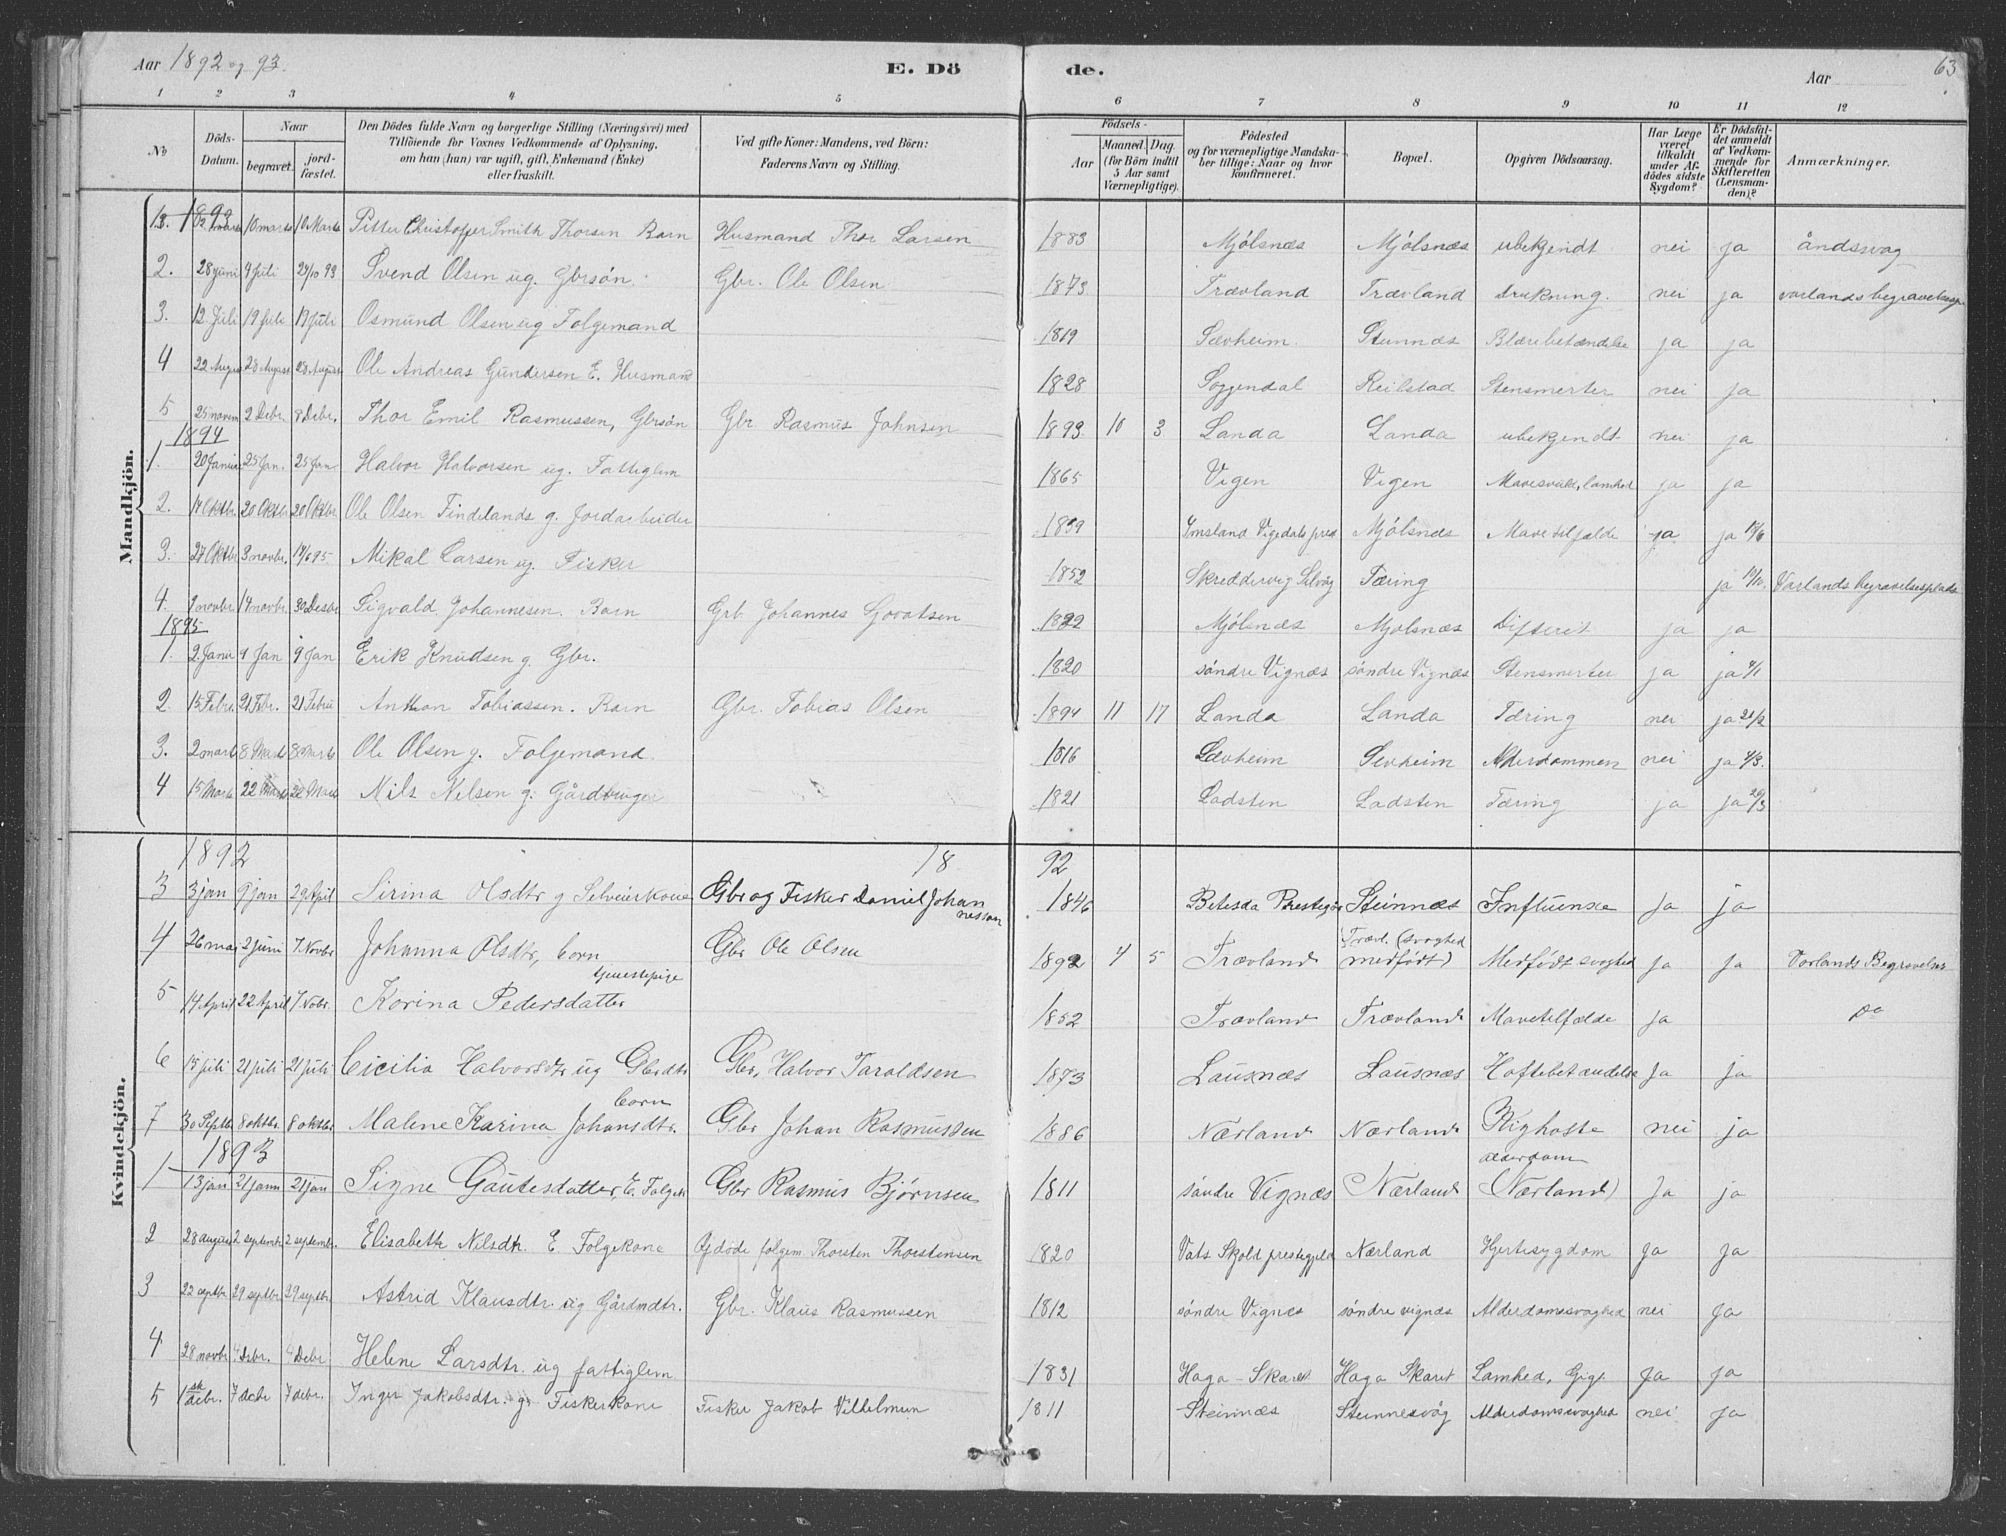 Aar 1892 og 93. E. Dö de. Aar 63
1 2 3 4 5 6 7 8 9 10 11 12
No Döds-Datum. Naar begravet. jord-fæstet. Den Dödes fulde Navn og borgerlige Stilling (Næringsvei) med Tilföiende for Voxnes Vedkommende af Oplysning, om han (hun) var ugift, gift, Enkemand (Enke) eller fraskilt. Ved gifte Koner: Mandens, ved Börn: Faderens Navn og Stilling. Födsels- Aar Maaned. Dag. (for Börn indtil 5 Aar samt Værnepligtige). Födested og for værnepligtige Mandskaber tillige: Naar og hvor konfirmeret. Bopæl. Opgiven Dödsaarsag. Har Læge været tilkaldt under Afdödes sidste Sygdom? Er Dödsfaldet anmeldt af Vedkommende for Skifteretten (Lensmanden)? Anmærkninger.
Mandkjön.
1893
Marts 10 marts 10 Marts Pitter Christoffer Smith Thorsen Barn Husmand Thor Larsen 1883 Mjölsnæs Mjölsnæs ubekjendt nei ja åndssvag
2. 28 juni 4 Juli 29/10 93 Svend Olsen ug. Gbrsön Gbr. Ole Olsen 1873 Trævland Trævland drukning. nei ja varlands begravelsespl
3. 12 Juli 19 juli 19 juli Osmund Olsen ug Folgemand 1819 Sævheim Steinnæs Blærebetændelse ja ja
4 22 August 28 August 28 August Ole Andreas Gundersen E. Husmand 1828 Soggendal Reilstad Stensmerter nei ja
5 25 novem 2 Debr. 8 Debr. Thor Emil Rasmussen, Gbrsön Gbr Rasmus Johnsen 1893 10 3 Landa Landa ubekjendt nei ja
1894
1. 20 Januar 25 Jan. 25 Jan Halvor Halvorsen ug. Fattiglem 1865 Vigen Vigen Mavesvulst, lamhed ja ja
2. 14 Oktbr. 20 Oktbr 20 Oktbr Ole Olsen Findelands g. Jordarbeider 1839 Imsland Vigedals pred Mjölsnæs Mavetilfælde ja ja
3. 27 Oktbr 3 novbr. 14/6 95 Mikal Larsen ug. Fisker 1852 Skreddervig Selvåg Tæring ja Varlands begravelsesplads
4. 9 novbr. 14 novbr. 30 Desbr Sigvald Johannesen. Barn Grb. Johannes Govatsen 1892 Mjölsnæs Mjolsnæs Difterit ja ja
1895
1. 2 Januar 9 Jan 9 Jan Erik Knudsen g. Gbr. 1820 söndre Vignæs söndre Vignæs Stensmerter ja ja
2. 15 Febr. 21 Febr. 21 Febru Anthon Tobiassen. Barn Gbr. Tobias Olsen 1894 11 17 Landa Landa Tæring nei ja 21/2
3. 2 marts 8 Marts 8 Marts Ole Olsen g. Folgemand 1816 Sævheim Sevheim Alderdommen nei ja 4/3.
4 15 Marts 22 Marts 22 Marts Nils Nilsen g. Gårdbruger 1821 Ladsten Ladsten Tæring ja ja 20/3
Kvindekjön.
1892 18 92
3 3 jan 9 jan 29 April Sirina Olsdtr g Selveierkone Gbr og Fisker Daniel Johannessen 1846 Betesda Prestegj Steinnæs Influensa Ja ja
4 26 mai 2 juni 7. Novbr Johanna Olsdtr, barn Gbr Ole Olsen 1892 4 5 Trævland Trævl. (svaghed medfödt) Medfödt svaghed Ja Ja Varlands Begravelses
5 14 April 22 April 7. Nobr. Karina Pedersdatter tjenestepige 1852 Trævland Trævland Mavetilfælde Ja Do
6 15 juli 21 juli 21 juli Cicilia Halvorsdtr ug Gbrdtr Gbr, Halvor Taraldsen 1873 Lausnæs Lausnæs Hoftebetændelse Ja ja
7 30 Septbr 8 oktbr. 8 oktbr Malene Karina Johansdtr. barn Gbr Johan Rasmussen 1886 Nærland Nærland Kighoste nei ja
1893
1 13 jan 21 janu 21 jan Signe Gautesdatter, E. Folgek Gbr Rasmus Bjørnsen 1811 söndre Vignæs Nærland alderdom (Nærland) Ja ja
2 28 august 2 septembr 2 septembr. Elisabeth Nilsdtr. E Folgekone Afdöde folgem. Thorsten Thorstensen 1820 Vats Skold prestegjeld Nærland Hjertesygdom Ja Ja
3 22 septbr 29 septbr 29 septbr. Astrid Klausdtr. ug Gårdmdtr. Gbr. Klaus Rasmussen 1812 söndre Vignæs söndre vignæs Alderdomssvaghed nei Ja
4 28 novbr 4 Debr. 4 Debr Helene Larsdtr. ug fattiglem 1831 Haga-Skaret Haga Skaret Lamhed, Gigt Ja Ja
5 1ste debr. 7 debr 7 debr. Inger Jakobsdtr. g. Fiskerkone Fisker Jakob Vilhelmsen 1811 Steinnæs Steinnesvåg Alderdomssvaghed nei Ja